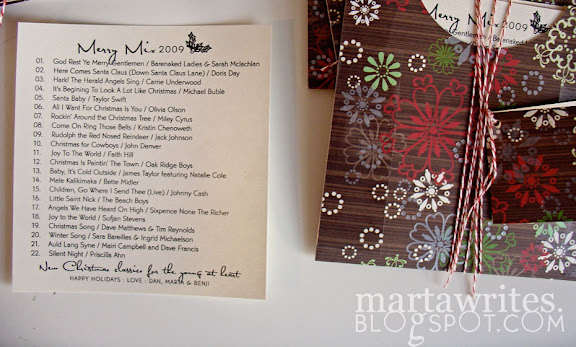 Merry Mix 2009
01. God Rest Ye Merry Gentlemen / Barenaked Ladies & Sarah Mclachlan
02. Here Comes Santa Claus (Down Santa Claus Lane) / Doris Day
03. Hark! The Herald Angels Sing / Carrie Underwood
04. It's Begining To Look A Lot Like Christmas / Michael Buble
05. Santa Baby / Taylor Swift
06. All I Want For Christmas Is You / Olivia Olson
07. Rockin' Around the Christmas Tree / Miley Cyrus
08. Come On Ring Those Bells / Kristin Chenoweth
09. Rudolph the Red Nosed Reindeer / Jack Johnson
10. Christmas for Cowboys / John Denver
11. Joy To The World / Faith Hill
12. Christmas Is Paintin' The Town / Oak Ridge Boys
13. Baby, It's Cold Outside / James Taylor featuring Natalie Cole
14. Mele Kalikimaka / Bette Midler
15. Children, Go Where I Send Thee (Live) / Johnny Cash
16. Little Saint Nick / The Beach Boys
17. Angels We Have Heard On High / Sixpence None The Richer
18. Joy to the World / Sufjan Stevens
19. Christmas Song / Dave Matthews & Tim Reynolds
20. Winter Song / Sara Bareilles & Ingrid Michaelson
21. Auld Lang Syne / Mairi Campbell and Dave Francis
22. Silent Night / Priscilla Ahn
New Christmas classics for the young at heart
HAPPY HOLIDAYS : LOVE : DAN, MARTA & BENJI
Merry Mix 2009
Gentlemen / Barenaked
martawrites.
BLOGSPOT.COM/